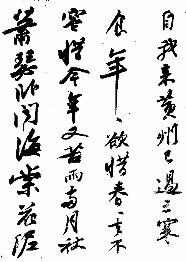 自我來黃州已過三寒
食年〻欲惜春〻去不
容惜今年又苦雨兩月秋
蕭瑟卧聞海棠花泥